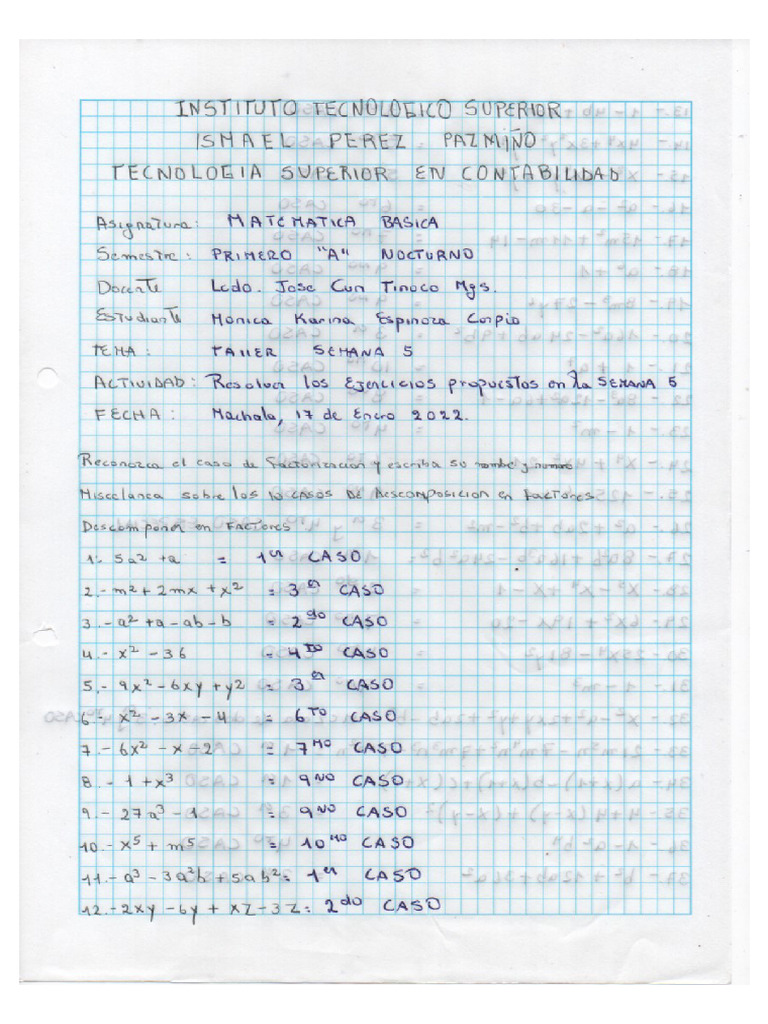 INSTITUTO TECNOLOGICO SUPERIOR
ISMAEL PEREZ PAZMIÑO
TECNOLOGIA SUPERIOR EN CONTABILIDAD
Asignatura: MATEMATICA BASICA
Semestre: PRIMERO "A" NOCTURNO
Docente Lcdo. Jose Cun Tinoco Mgs.
Estudiante Monica Karina Espinoza Carpio
TEMA: TALLER SEMANA 5
ACTIVIDAD: Resolver los Ejercicios propuestos en la SEMANA 5
FECHA: Machala, 17 de Enero 2022.
Reconozca el caso de Factorizacion y escriba su nombre y numero
Miscelanea sobre los 10 CASOS DE DESCOMPOSICION en FACTORES
Descomponer en FACTORES
1.- 5a² + a = 1er CASO
2.- m² + 2mx + x² = 3er CASO
3.- a² + a - ab - b = 2do CASO
4.- x² - 36 = 4to CASO
5.- 9x² - 6xy + y2 = 3er CASO
6.- x² - 3x - 4 = 6TO CASO
7.- 6x² - x - 2 = 7MO CASO
8.- 1 + x³ = 9NO CASO
9.- 27a³ - 1 = 9NO CASO
10.- x⁵ + m⁵ = 10MO CASO
11.- a³ - 3a²b + 5ab² = 1er CASO
12.- 2xy - 6y + xz - 3z = 2do CASO